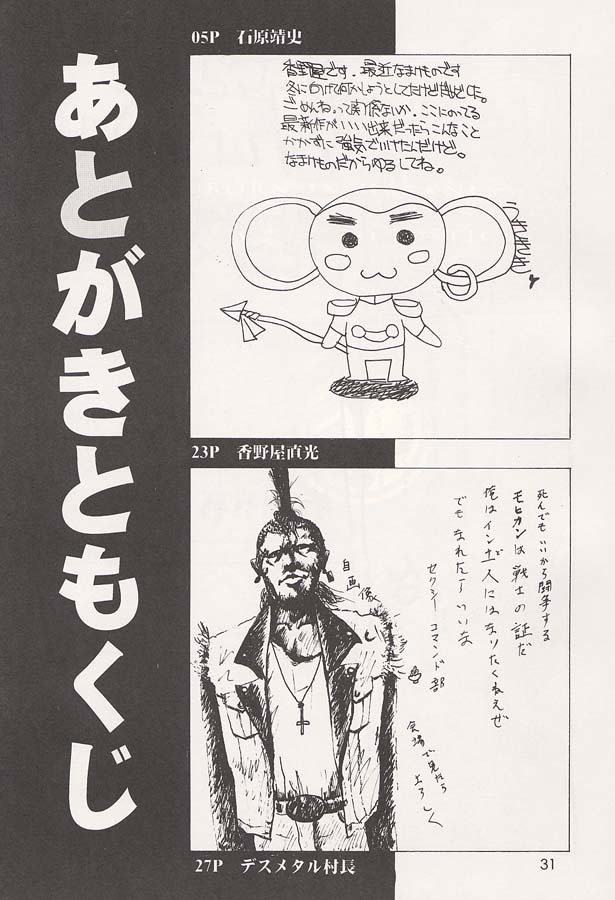 あとがきともくじ
05P 石原靖史
香野屋です。最近なまけものです
冬にむけて何かしようとしてたけどだめでした。
ごめんねって関係ないか。ここにのってる
最新作がいい出来だったらこんなこと
かかずに強気でいけたんだけど。
なまけものだからゆるしてね。
うききききし
23P 香野屋直光
死んでもいいから闘争する
モヒカンは戦士の証だ
俺はインド人にはなりたくねえぜ
でもなれたらいいな
セクシーコマンドー部
自画像
会場で見たら
よろしく
27P デスメタル村長
31